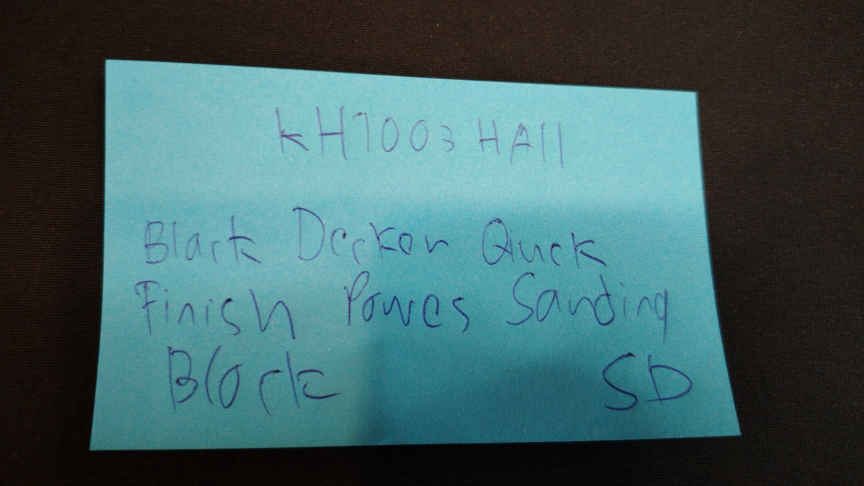 KH7003 HAll
Black Decker Quick
Finish Power Sanding
Block SD